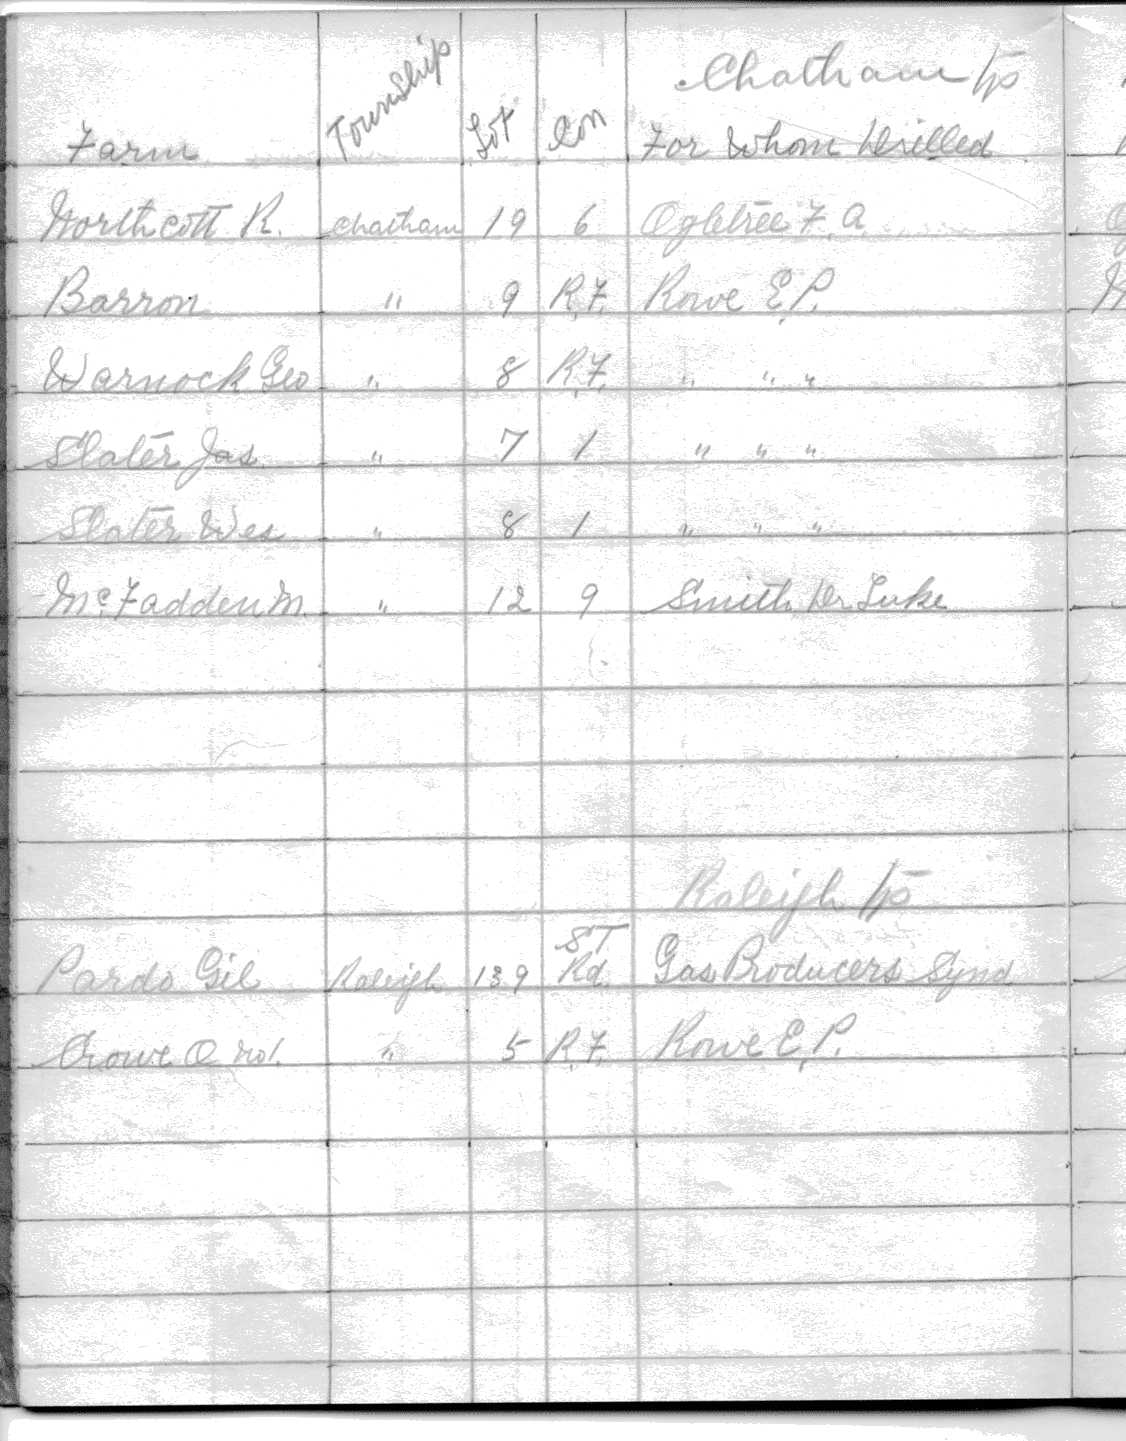 Chatham tp
Farm Township Lot Con For Whom Drilled
Northcott R. Chatham 19 6 Ogletree F. A.
Barron " 9 R.F. Rowe E.P.
Warnock Geo " 8 R.F. " " "
Slater Jas. " 7 1 " " "
Slater Wes " 8 1 " " "
McFadden M. " 12 9 Smith Dr Luke
Raleigh tp
S T
Pardo Gil Raleigh 139 Rd. Gas Producers Synd
Crowe O No 1. " 5 R.F. Rowe E.P.